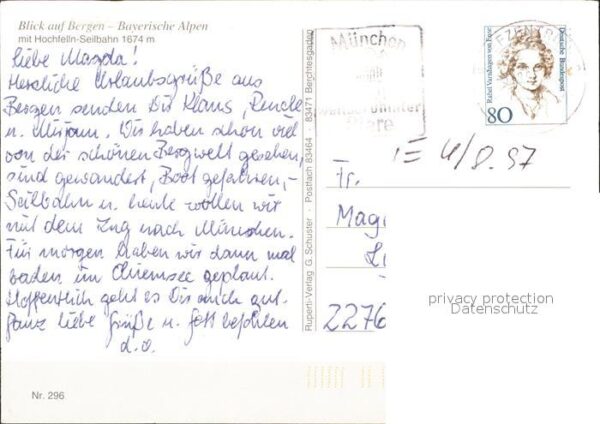 Blick auf Bergen - Bayerische Alpen
mit Hochfelln-Seilbahn 1674 m
Liebe Magda!
Herzliche Urlaubsgrüße aus
Bergen senden Dir Klaus, Renate
u. Mirjam. Wir haben schon viel
von der schönen Bergwelt gesehen,
sind gewandert, Boot gefahren, -
Seilbahn u. heute wollen wir
mit dem Zug nach München.
Für morgen haben wir dann mal
baden im Chiemsee geplant.
Hoffentlich geht es Dir auch gut.
Ganz liebe Grüße u. Gott befohlen
d. o.
Nr. 296
Ruperti-Verlag G. Schuster · Postfach 83464 · 83471 Berchtesgaden
München
80
Rahel Varnhagen von Ense
Deutsche Bundespost
E 4/8.97
Fr.
Mag
Li
2276
privacy protection
Datenschutz